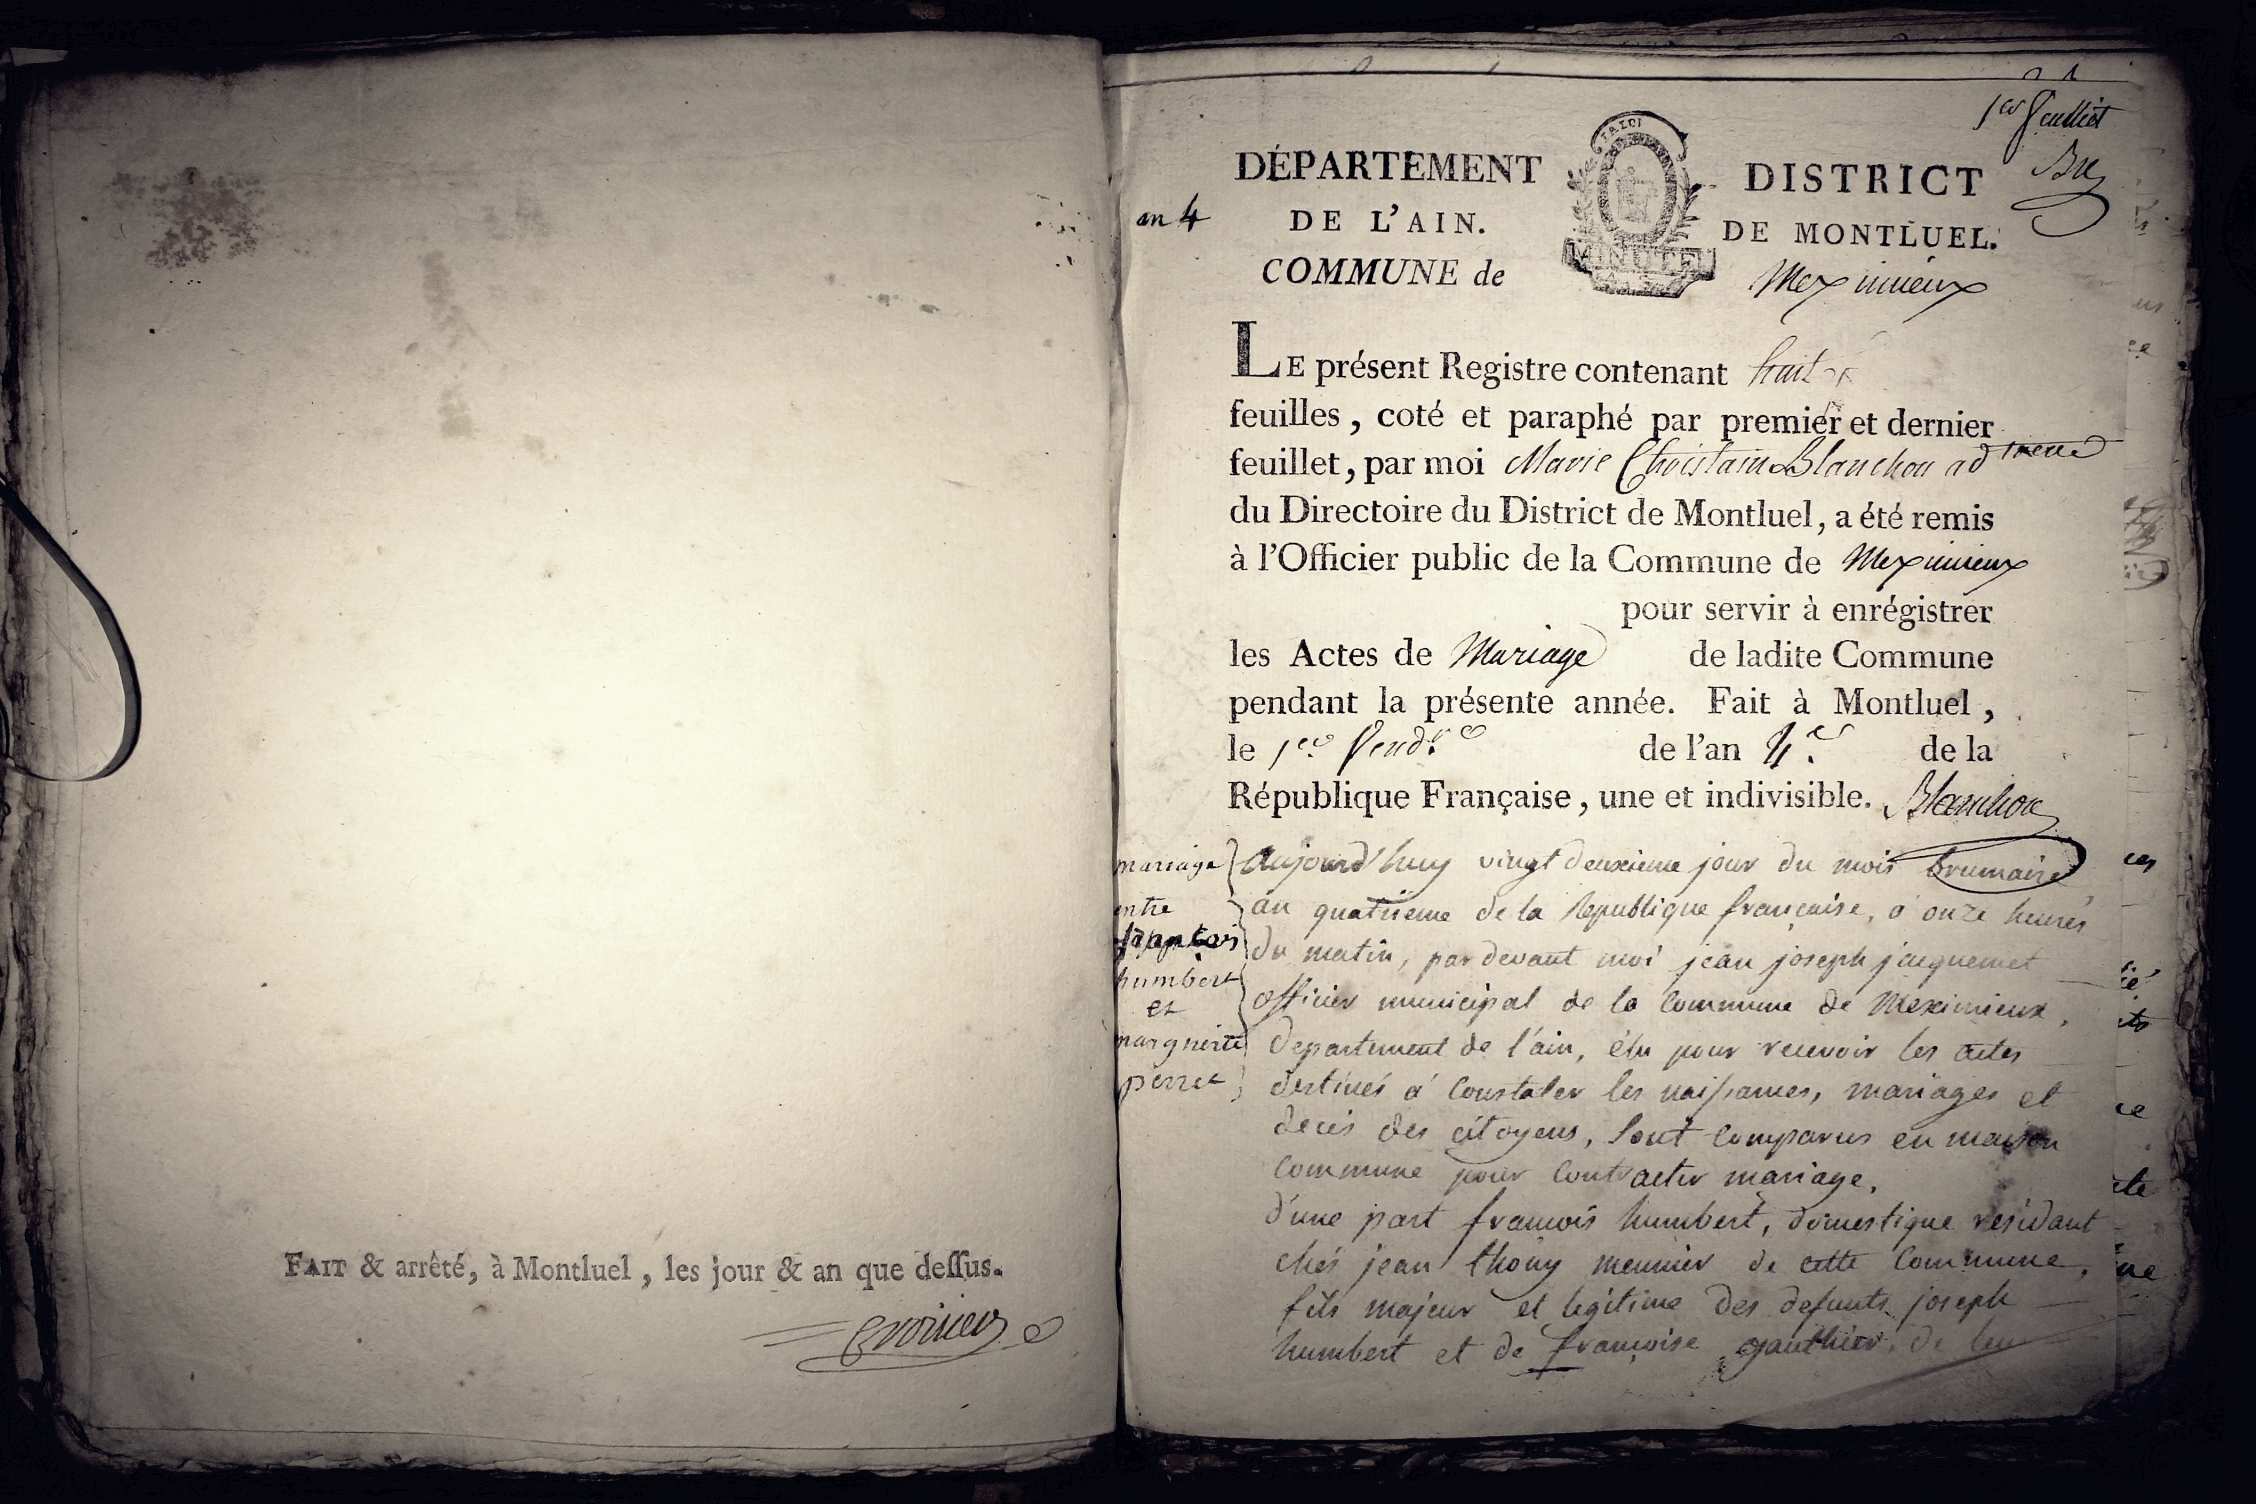 FAIT & arrêté, à Montluel, les jour & an que deſſus.
1er feuillet
DÉPARTEMENT
DE L'AIN.
COMMUNE de
an 4
MINUTE
DISTRICT
DE MONTLUEL.
Meximieux
LE présent Registre contenant huit
feuilles, coté et paraphé par premier et dernier
feuillet, par moi Marie Blanchon
du Directoire du District de Montluel, a été remis
à l'Officier public de la Commune de Meximieux
pour servir à enrégistrer
les Actes de Mariage de ladite Commune
pendant la présente année. Fait à Montluel,
le 1er Vend.re de l'an 4.e de la
République Française, une et indivisible. Blanchon
mariage
entre
françois
humbert
et
marguerite
pierret
Aujourd'huy vingt deuxieme jour du mois brumaire
an quatrieme de la Republique française, a onze heures
du matin, par devant moi jean joseph jacquemet
officier municipal de la commune de Meximieux,
departement de l'ain, élu pour recevoir les actes
destinés a constater les naissances, mariages et
deces des citoyens, sont comparus en maison
commune pour contracter mariage,
d'une part francois humbert, domestique residant
chés jean thony meunier de cette commune,
fils majeur et legitime des defunts joseph
humbert et de françoise gauthier, de leur